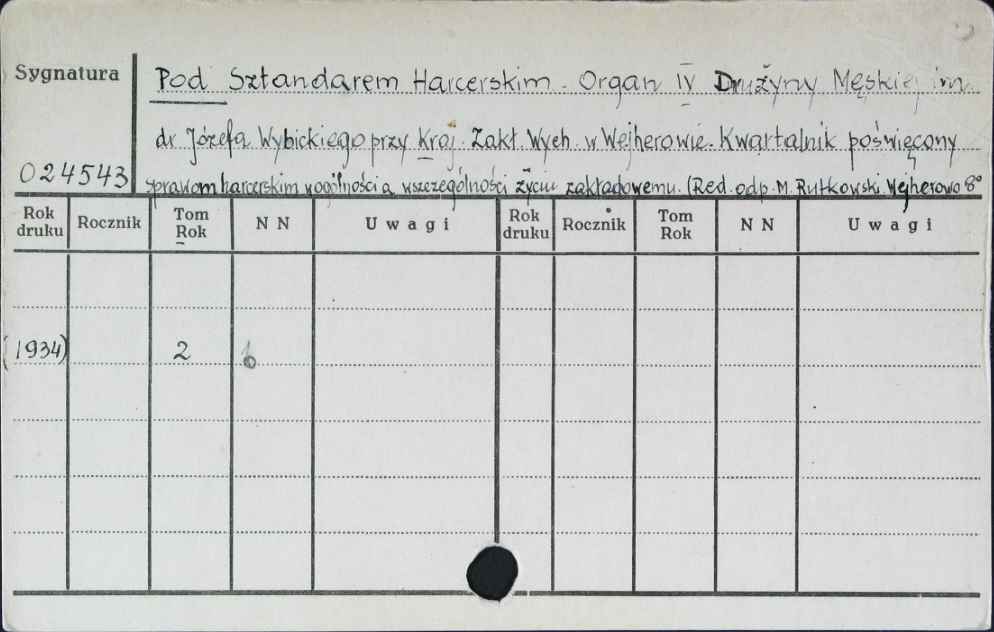 Sygnatura
Pod Sztandarem Harcerskim. Organ IV Drużyny Męskiej im.
dr Józefa Wybickiego przy Kraj. Zakł. Wych. w Wejherowie. Kwartalnik poświęcony
024543
sprawom harcerskim wogólności a wszczególności życiu zakładowemu. (Red. odp. M. Rutkowski. Wejherowo 8°
Rok druku Rocznik Tom Rok N N Uwagi Rok druku Rocznik Tom Rok N N Uwagi
(1934) 2